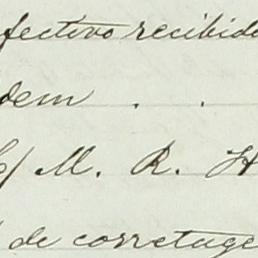 fectivo recibido
dem . .
C/ M. R. H
de corretage